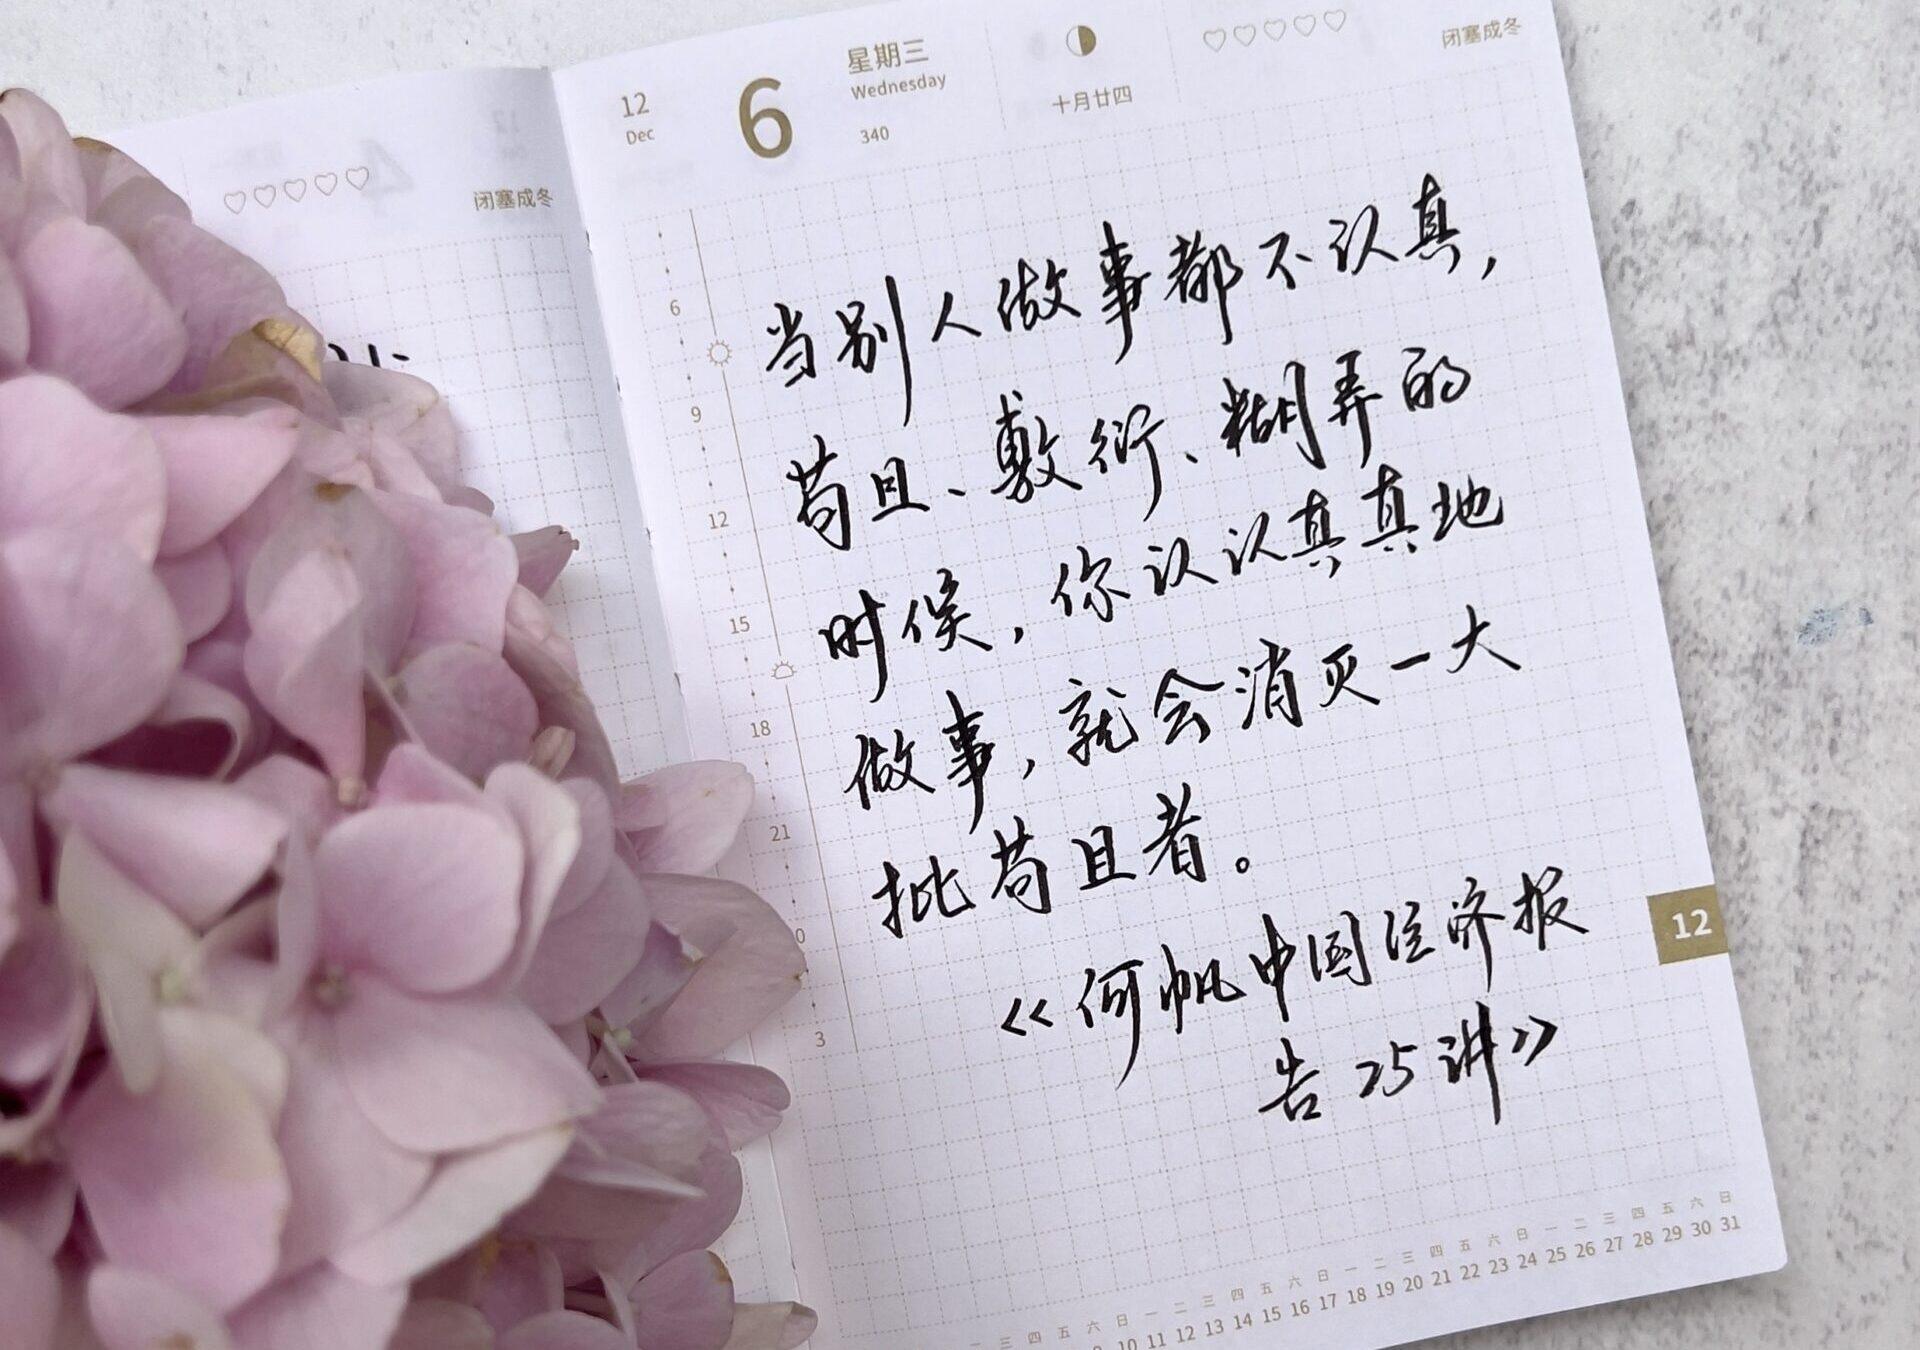 闭塞成冬
12
Dec
6
星期三
Wednesday
340
十月廿四
闭塞成冬
6
9
12
15
18
21
0
3
当别人做事都不认真,
苟且、敷衍、糊弄的
时候,你认认真真地
做事,就会消灭一大
批苟且者。
《何帆中国经济报
告25讲》
12
一 三 四 五 六 日 一 二 三 四 五 六 日 一 二 三 四 五 六 日 一 二 三 四 五 六 日
10 11 12 13 14 15 16 17 18 19 20 21 22 23 24 25 26 27 28 29 30 31